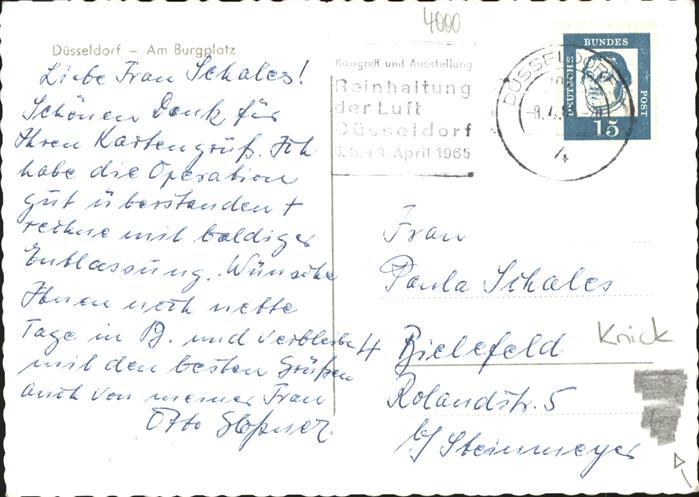 4000
Düsseldorf – Am Burgplatz
Liebe Frau Schales!
Schönen Dank für
Ihren Kartengruß. Ich
habe die Operation
gut überstanden +
rechne mit baldiger
Entlassung. Wünsche
Ihnen noch nette
Tage in B. und verbleibe
mit den besten Grüßen
auch von meiner Frau
Otto
Kongreß und Ausstellung
Reinhaltung
der Luft
Düsseldorf
5. bis 9. April 1965
DÜSSELDORF
4
DEUTSCHE BUNDES POST
15
Frau
Paula Schales
4 Bielefeld
Knick
Rolandstr. 5
b/ Steinmeyer